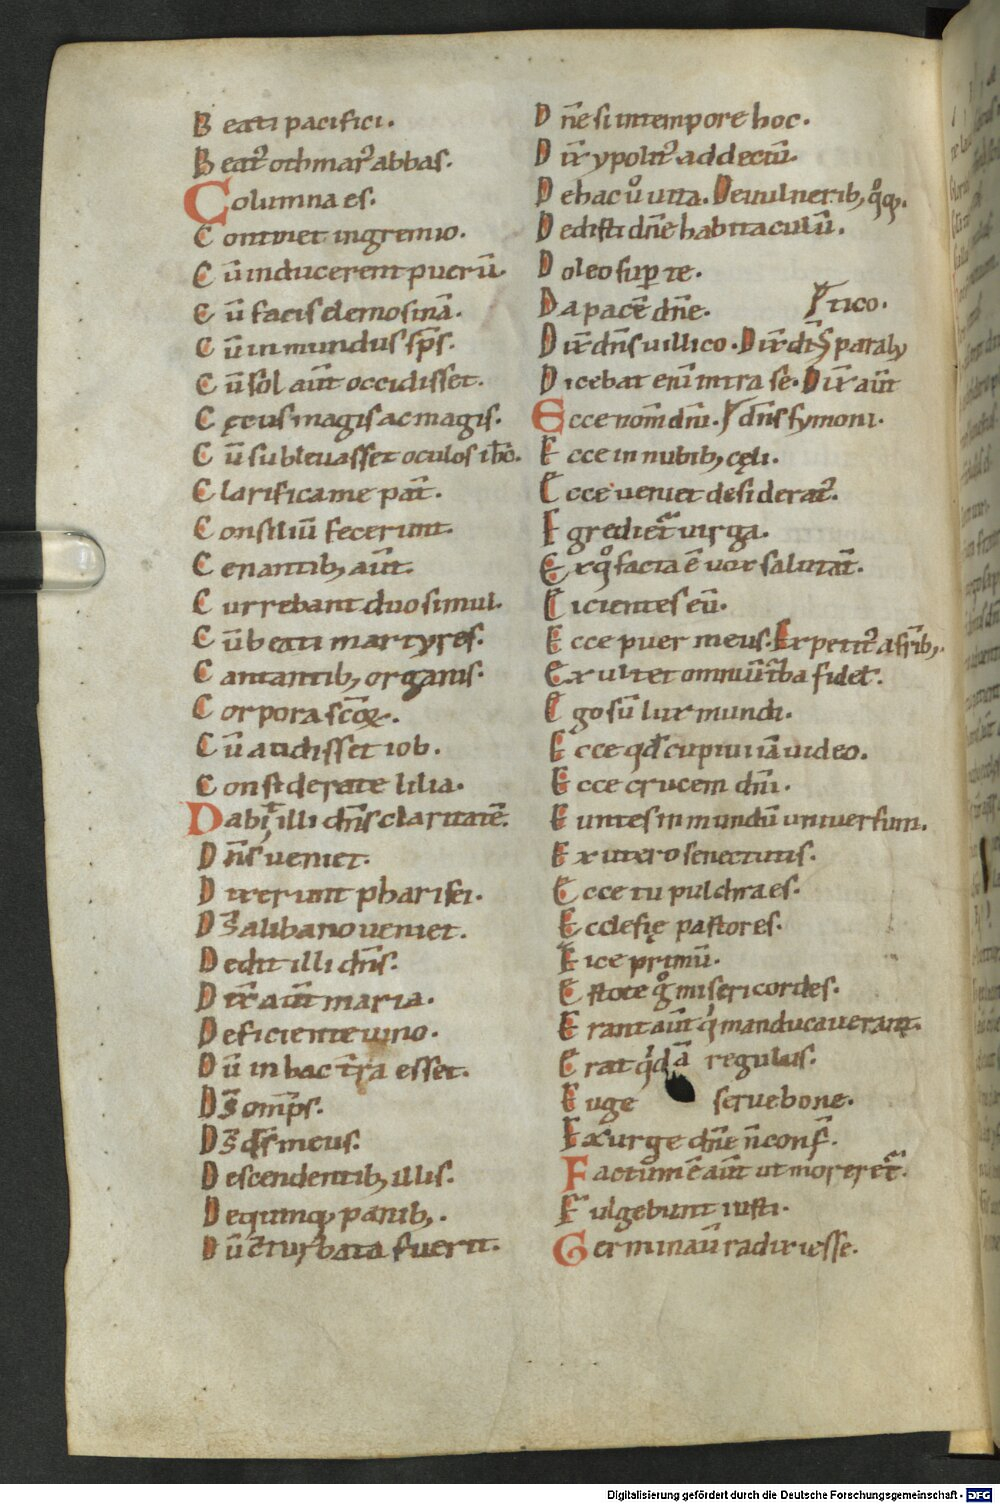 Beati pacifici.
Beatꝰ othmarꝰ abbas.
Columna es.
Continet ingremio.
Cū inducerent puerū.
Cū facis elemosinā.
Cū inmundus sp̄s.
Cū sol aut̄ occidisset.
Cęcus magis ac magis.
Cū sublevasset oculos ih̄c.
Clarifica me pat̄.
Consiliū fecerunt.
Cenantib; aut̄.
Currebant duo simul.
Cū beati martyres.
Cantantib; organis.
Corpora sc̄oꝝ.
Cū audisset iob.
Considerate lilia.
Dabit illi dn̄s claritatē.
Dn̄s veniet.
Dixerunt pharisei.
Ds̄ a libano veniet.
Dedit illi dn̄s.
Dix̄ aut̄ maria.
Deficiente vino.
Dū in hac t̄ra esset.
Ds̄ om̄ps.
Ds̄ ds̄ meus.
Descendentib; illis.
De quinq; panib;.
Dū c̄turbata fuerit.
Dn̄e si in tempore hoc.
Dix̄ ypolitꝰ ad deciū.
De hac ů vita. De vulnerib; qͦq;.
Dedisti dn̄e habitaculū.
D oleo sup te.
Da pacē dn̄e. tico.
Dix̄ dn̄s villico. Dix̄ dn̄s paraly
Dicebat enī intra se. Dix̄ aut̄
Ecce nom̄ dn̄i. dn̄s symoni.
Ecce in nubib; cęli.
Ecce veniet desideratꝰ.
Egredietᷣ virga.
Ex qͦ facta ē vox salutat̄.
Eicientes eū.
Ecce puer meus. Expetitꝰ assib;.
Exultet omniū t̄ba fidel̄.
Ego sū lux mundi.
Ecce qd̄ cupivi iā video.
Ecce crucem dn̄i.
Euntes in mundū universum.
Ex utero senectutis.
Ecce tu pulchra es.
Ecclesię pastores.
Eice primū.
Estote gͦ misericordes.
Erant aut̄ qͥ manducaverant.
Erat qͥdā regulus.
Euge serve bone.
Exurge dn̄e n̄ conf̄.
Factum ē aut̄ ut moreretᷣ.
Fulgebunt iusti.
Germinavͭ radix iesse.
Digitalisierung gefördert durch die Deutsche Forschungsgemeinschaft - DFG